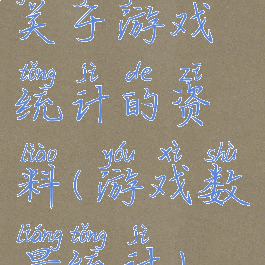 关于游戏
tǒng jì de zī
统计的资
liào yóu xì shù
料(游戏数
liàng tǒng jì
量统计)